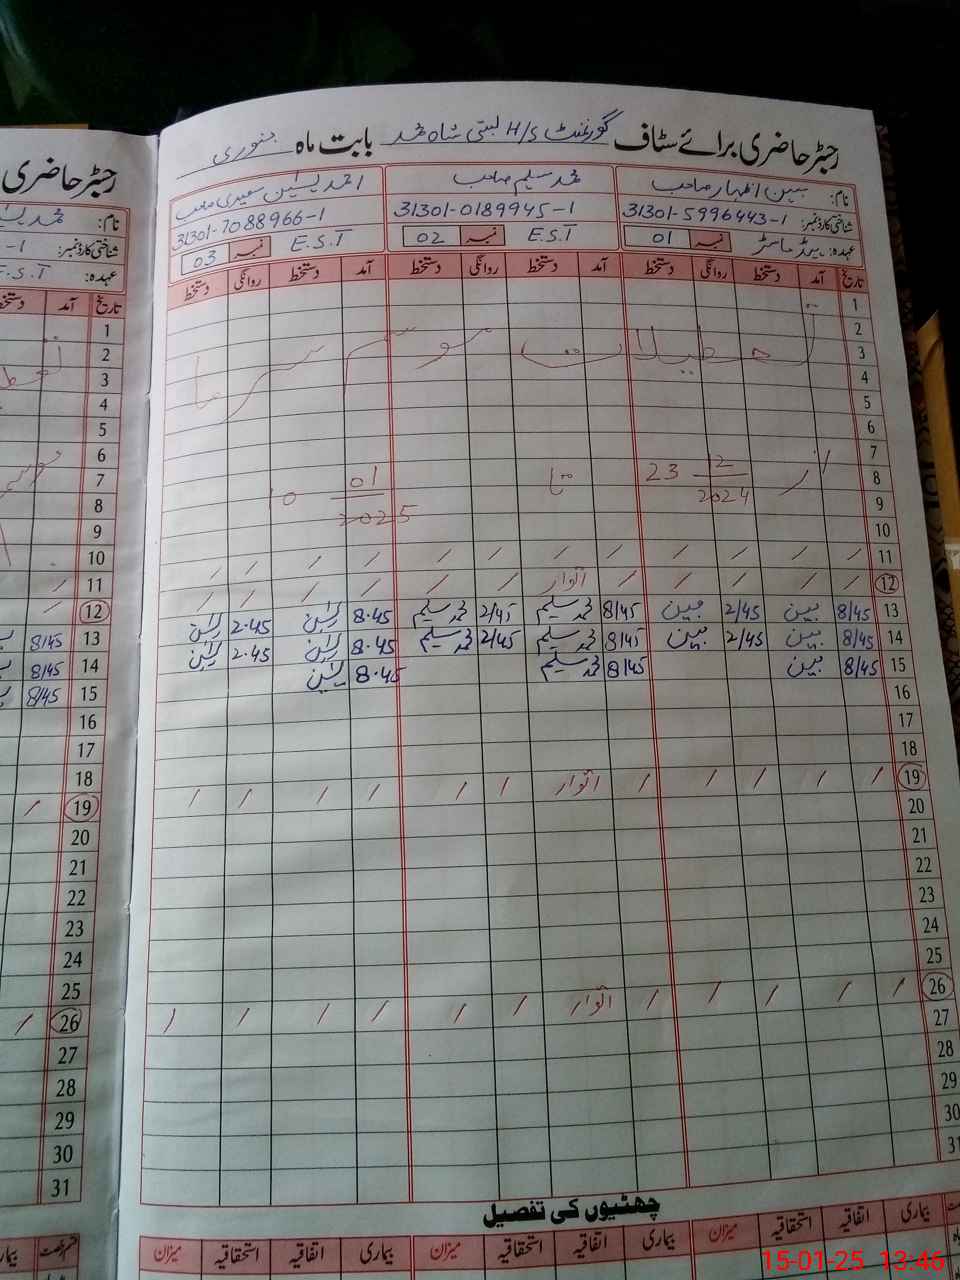 رجسٹر حاضری برائے سٹاف گورنمنٹ H/S بستی شاہ محمد بابت ماہ جنوری
نام: مبین اظہار صاحب محمد سلیم صاحب احمد یٰسین سعیدی صاحب
شناختی کارڈ نمبر: 31301-5996443-1 31301-0189945-1 31301-7088966-1
عہدہ: ہیڈ ماسٹر نمبر 01 E.S.T نمبر 02 E.S.T نمبر 03
تاریخ آمد دستخط روانگی دستخط آمد دستخط روانگی دستخط آمد دستخط روانگی دستخط
1
2
3 تعطیلات موسم سرما
4
5
6
7
8 از 23 12/2024 تا 10 01/2025
9
10
11 / / / / / / / / / / / /
12 / / / / / اتوار / / / / / /
13 8/45 مبین 2/45 مبین 8/45 محمد سلیم 2/45 محمد سلیم 8.45 یٰسین 2.45 یٰسین
14 8/45 مبین 2/45 مبین 8/45 محمد سلیم 2/45 محمد سلیم 8.45 یٰسین 2.45 یٰسین
15 8/45 مبین 8/45 محمد سلیم 8.45 یٰسین
16
17
18
19 / / / / / اتوار / / / / / /
20
21
22
23
24
25
26 / / / / / اتوار / / / / / /
27
28
29
30
31
چھٹیوں کی تفصیل
بیماری اتفاقیہ استحقاقیہ میزان بیماری اتفاقیہ استحقاقیہ میزان بیماری اتفاقیہ استحقاقیہ میزان
رجسٹر حاضری
نام: محمد
شناختی کارڈ نمبر:
عہدہ: E.S.T
تاریخ آمد
1
2
3
4
5
6
7
8
9
10
11 /
12 /
13 8/45
14 8/45
15 8/45
16
17
18
19 /
20
21
22
23
24
25
26 /
27
28
29
30
31
قسم رخصت بیماری
15-01-25 13:46